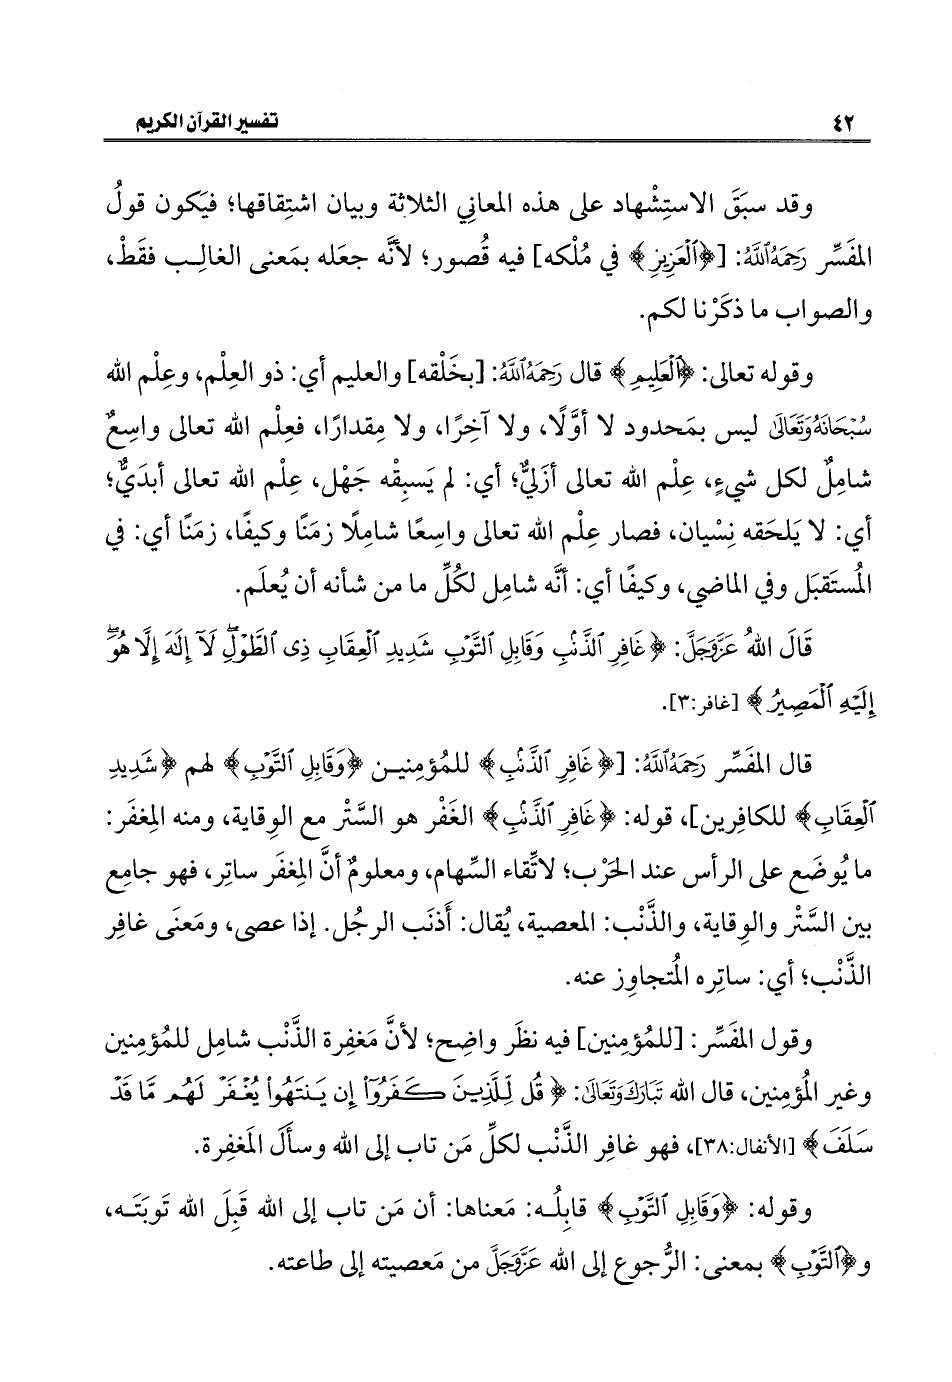 ٤٢
تفسير القرآن الكريم
وقد سبَقَ الاستِشْهاد على هذه المعانِي الثلاثة وبيان اشتِقاقها؛ فيَكون قولُ
المفَسِّر رَحِمَهُ اللَّهُ: [﴿ٱلْعَزِيزِ﴾ في مُلْكه] فيه قُصور؛ لأنَّه جعَله بمَعنى الغالِب فقَطْ،
والصواب ما ذكَرْنا لكم.
وقوله تعالى: ﴿ٱلْعَلِيمِ﴾ قال رَحِمَهُ اللَّهُ: [بخَلْقه] والعليم أي: ذو العِلْم، وعِلْم الله
سُبْحَانَهُ وَتَعَالَىٰ ليس بمَحدود لا أوَّلًا، ولا آخِرًا، ولا مِقدارًا، فعِلْم الله تعالى واسِعٌ
شامِلٌ لكل شيءٍ، عِلْم الله تعالى أزَليٌّ؛ أي: لم يَسبِقْه جَهْل، عِلْم الله تعالى أبدَيٌّ؛
أي: لا يَلحَقه نِسْيان، فصار عِلْم الله تعالى واسِعًا شامِلًا زمَنًا وكيفًا، زمَنًا أي: في
المُستَقبَل وفي الماضي، وكيفًا أي: أنَّه شامِل لكُلِّ ما من شأنه أن يُعلَم.
قَالَ اللهُ عَزَّوَجَلَّ: ﴿غَافِرِ ٱلذَّنۢبِ وَقَابِلِ ٱلتَّوْبِ شَدِيدِ ٱلْعِقَابِ ذِى ٱلطَّوْلِ ۖ لَآ إِلَٰهَ إِلَّا هُوَ ۖ
إِلَيْهِ ٱلْمَصِيرُ﴾ [غافر:٣].
قال المفَسِّر رَحِمَهُ اللَّهُ: [﴿غَافِرِ ٱلذَّنۢبِ﴾ للمُؤمِنيـن ﴿وَقَابِلِ ٱلتَّوْبِ﴾ لهم ﴿شَدِيدِ
ٱلْعِقَابِ﴾ للكافِرين]، قوله: ﴿غَافِرِ ٱلذَّنۢبِ﴾ الغَفْر هو السَّتْر مع الوِقاية، ومنه المِغفَر:
ما يُوضَع على الرأس عند الحَرْب؛ لاتِّقاء السِّهام، ومعلومٌ أنَّ المِغفَر ساتِر، فهو جامِع
بين السَّتْر والوِقاية، والذَّنْب: المعصية، يُقال: أَذنَب الرجُل. إذا عصى، ومَعنَى غافِر
الذَّنْب؛ أي: ساتِره المُتجاوِز عنه.
وقول المفَسِّر: [للمُؤمِنين] فيه نظَر واضِح؛ لأنَّ مَغفِرة الذَّنْب شامِل للمُؤمِنين
وغير المُؤمِنين، قال الله تَبَارَكَ وَتَعَالَىٰ: ﴿قُل لِّلَّذِينَ كَفَرُوٓا۟ إِن يَنتَهُوا۟ يُغْفَرْ لَهُم مَّا قَدْ
سَلَفَ﴾ [الأنفال:٣٨]، فهو غافِر الذَّنْب لكلِّ مَن تاب إلى الله وسأَلَ المَغفِرة.
وقوله: ﴿وَقَابِلِ ٱلتَّوْبِ﴾ قابِلُـه: مَعناها: أن مَن تاب إلى الله قَبِلَ الله تَوبَتَـه،
و﴿ٱلتَّوْبِ﴾ بمعنى: الرُّجوع إلى الله عَزَّوَجَلَّ من مَعصيته إلى طاعته.